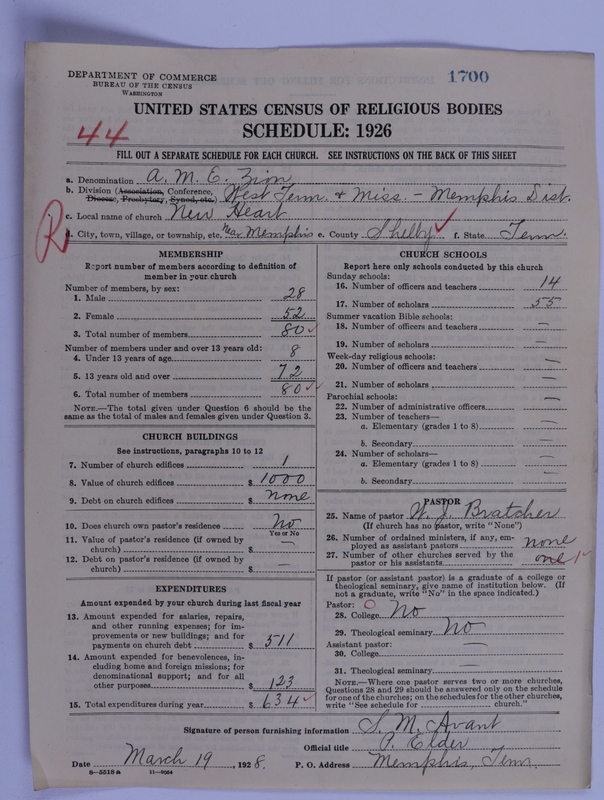 DEPARTMENT OF COMMERCE
BUREAU OF THE CENSUS
WASHINGTON
1700
UNITED STATES CENSUS OF RELIGIOUS BODIES
SCHEDULE: 1926
44
FILL OUT A SEPARATE SCHEDULE FOR EACH CHURCH. SEE INSTRUCTIONS ON THE BACK OF THIS SHEET
a. Denomination A. M. E. Zion
b. Division (Association, Conference, Diocese, Presbytery, Synod, etc.) West Tenn. & Miss. - Memphis Dist.
c. Local name of church New Heart
R
d. City, town, village, or township, etc. Near Memphis e. County Shelby f. State Tenn.
MEMBERSHIP
Report number of members according to definition of
member in your church
Number of members, by sex:
1. Male 28
2. Female 52
3. Total number of members 80
Number of members under and over 13 years old:
4. Under 13 years of age 8
5. 13 years old and over 72
6. Total number of members 80
NOTE.—The total given under Question 6 should be the
same as the total of males and females given under Question 3.
CHURCH BUILDINGS
See instructions, paragraphs 10 to 12
7. Number of church edifices 1
8. Value of church edifices $ 1000
9. Debt on church edifices $ none
10. Does church own pastor's residence No
Yes or No
11. Value of pastor's residence (if owned by
church) $ —
12. Debt on pastor's residence (if owned by
church) $ —
EXPENDITURES
Amount expended by your church during last fiscal year
13. Amount expended for salaries, repairs,
and other running expenses; for im-
provements or new buildings; and for
payments on church debt $ 511
14. Amount expended for benevolences, in-
cluding home and foreign missions; for
denominational support; and for all
other purposes $ 123
15. Total expenditures during year $ 634
CHURCH SCHOOLS
Report here only schools conducted by this church
Sunday schools:
16. Number of officers and teachers 14
17. Number of scholars 55
Summer vacation Bible schools:
18. Number of officers and teachers —
19. Number of scholars —
Week-day religious schools:
20. Number of officers and teachers —
21. Number of scholars —
Parochial schools:
22. Number of administrative officers —
23. Number of teachers—
a. Elementary (grades 1 to 8) —
b. Secondary —
24. Number of scholars—
a. Elementary (grades 1 to 8) —
b. Secondary —
PASTOR
25. Name of pastor W. J. Bratcher
(If church has no pastor, write "None")
26. Number of ordained ministers, if any, em-
ployed as assistant pastors none
27. Number of other churches served by the
pastor or his assistants one 1
If pastor (or assistant pastor) is a graduate of a college or
theological seminary, give name of institution below. (If
not a graduate, write "No" in the space indicated.)
Pastor: O
28. College No
29. Theological seminary No
Assistant pastor: —
30. College
31. Theological seminary —
NOTE.—Where one pastor serves two or more churches,
Questions 28 and 29 should be answered only on the schedule
for one of the churches; on the schedules for the other churches,
write "See schedule for ________ church."
Signature of person furnishing information S. M. Avant
Official title P. Elder
Date March 19, 1928. P. O. Address Memphis, Tenn.
8—5518a 11—9054